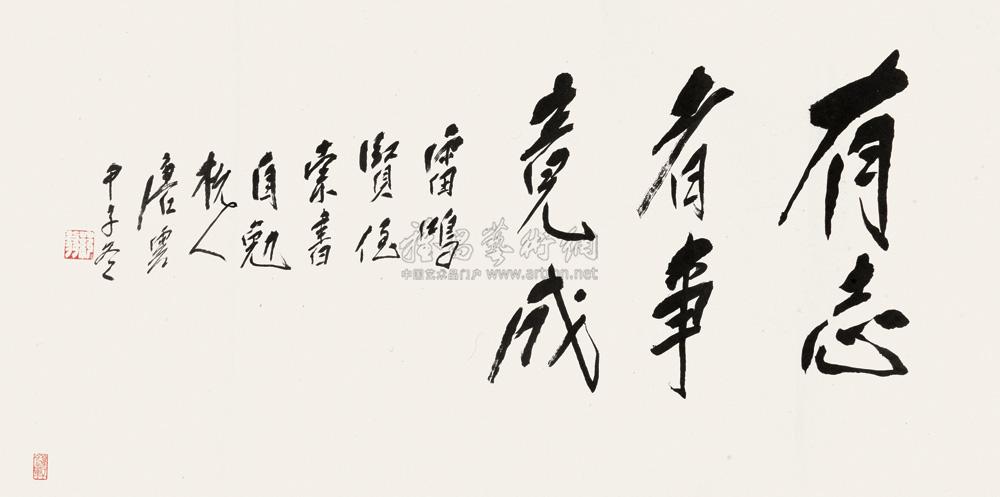 有志
者事
竟成
雷鸿
贤侄
索书
自勉
杭人
唐云
甲子冬
雅昌藝術網
中国艺术品门户 www.artron.net